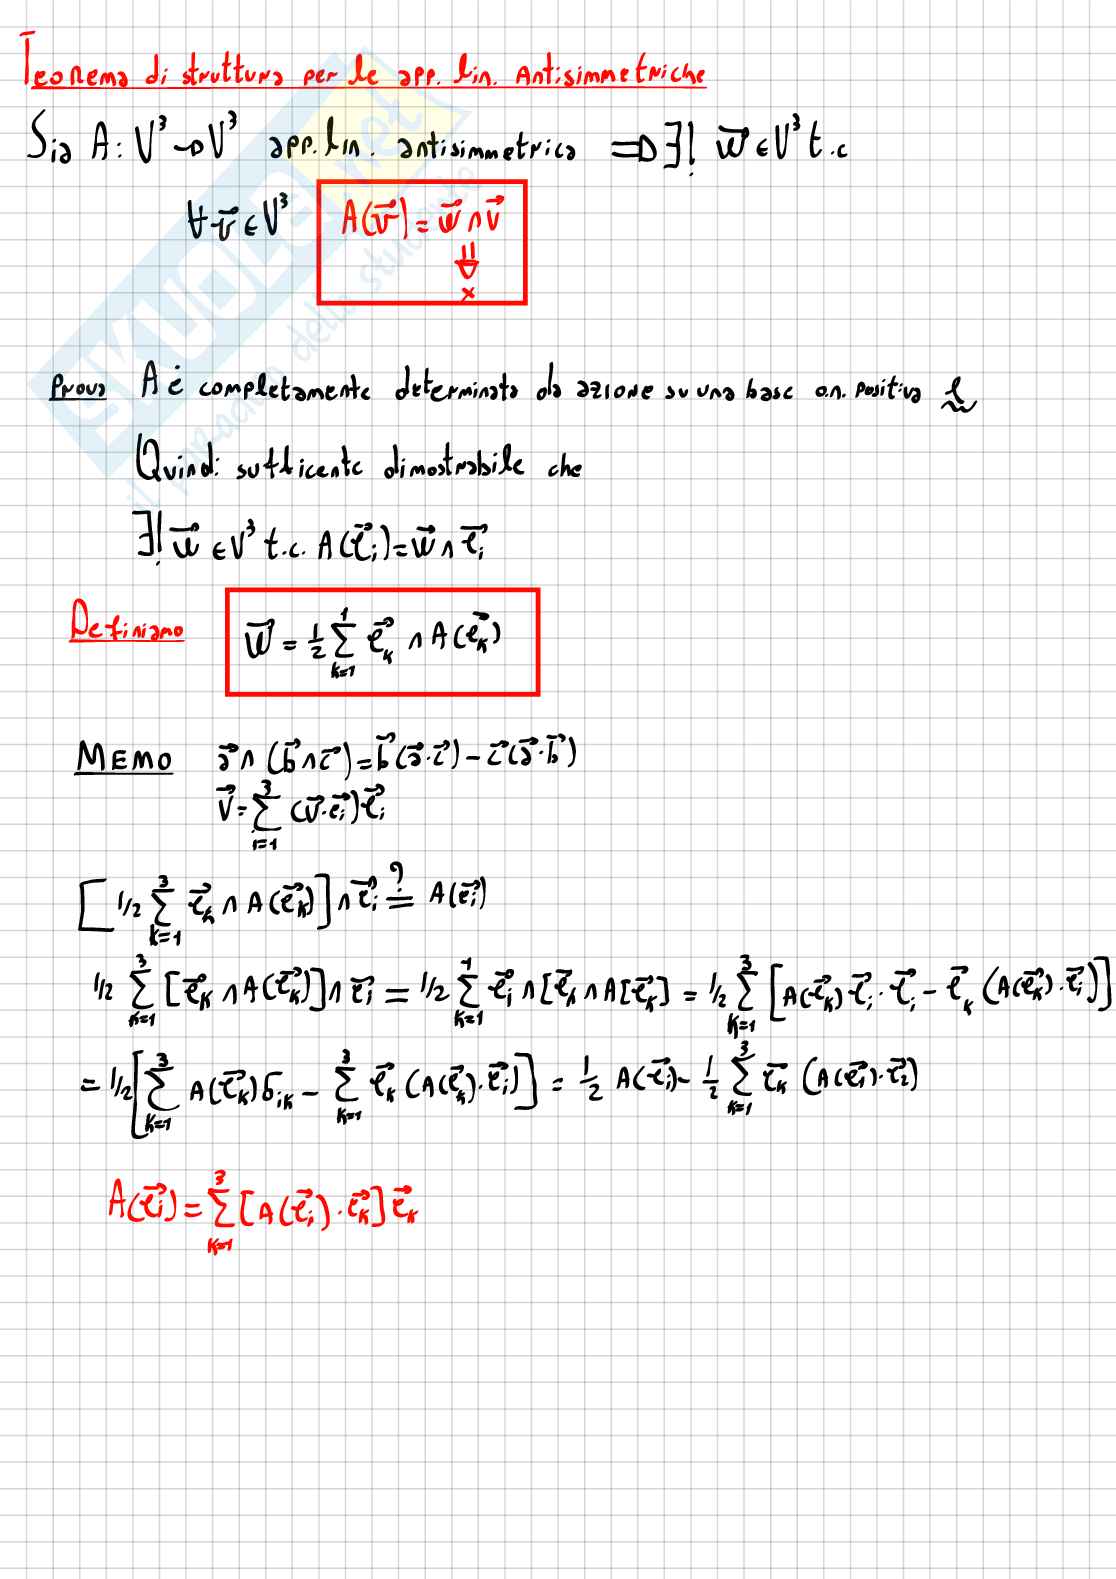 Teorema di struttura per le app. lin. Antisimmetriche
Sia A: V³→V³ app. lin. antisimmetrica ⇒ ∃! w⃗ ∈ V³ t.c
∀ v⃗ ∈ V³ A(v⃗) = w⃗ ∧ v⃗
⇓
x
Prova A è completamente determinata da azione su una base o.n. positiva e
Quindi sufficente dimostrabile che
∃! w⃗ ∈ V³ t.c. A(e⃗ᵢ) = w⃗ ∧ e⃗ᵢ
Definiamo w⃗ = 1/2 Σ_{k=1}^{1} e⃗_k ∧ A(e⃗_k)
MEMO a⃗ ∧ (b⃗ ∧ c⃗) = b⃗ (a⃗·c⃗) - c⃗ (a⃗·b⃗)
v⃗ = Σ_{i=1}^{3} (v⃗·e⃗ᵢ) e⃗ᵢ
[1/2 Σ_{k=1}^{3} e⃗_k ∧ A(e⃗_k)] ∧ e⃗ᵢ =? A(e⃗ᵢ)
1/2 Σ_{k=1}^{3} [e⃗_k ∧ A(e⃗_k)] ∧ e⃗ᵢ = 1/2 Σ_{k=1}^{1} e⃗ᵢ ∧ [e⃗_k ∧ A[e⃗_k] = 1/2 Σ_{k=1}^{3} [A(e⃗_k) e⃗ᵢ · e⃗ᵢ - e⃗_k (A(e⃗_k) · e⃗ᵢ)]
= 1/2 [Σ_{k=1}^{3} A(e⃗_k) δ_{ik} - Σ_{k=1}^{3} e⃗_k (A(e⃗_k) · e⃗ᵢ)] = 1/2 A(e⃗ᵢ) - 1/2 Σ_{k=1}^{3} e⃗_k (A(e⃗ᵢ) · e⃗₂)
A(e⃗ᵢ) = Σ_{k=1}^{3} [A(e⃗ᵢ) · e⃗_k] e⃗_k
SKUOLA.net
il paradiso dello studente